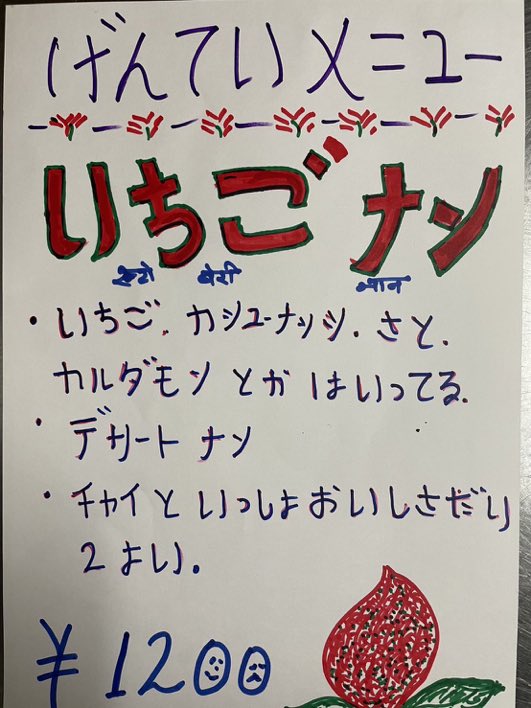 げんていメニュー
いちごナン
・いちご、カシューナッシ、さと、
カルダモン とか はいってる。
・デザートナン
・チャイと いっしょ おいしさだい
2よい。
¥1200